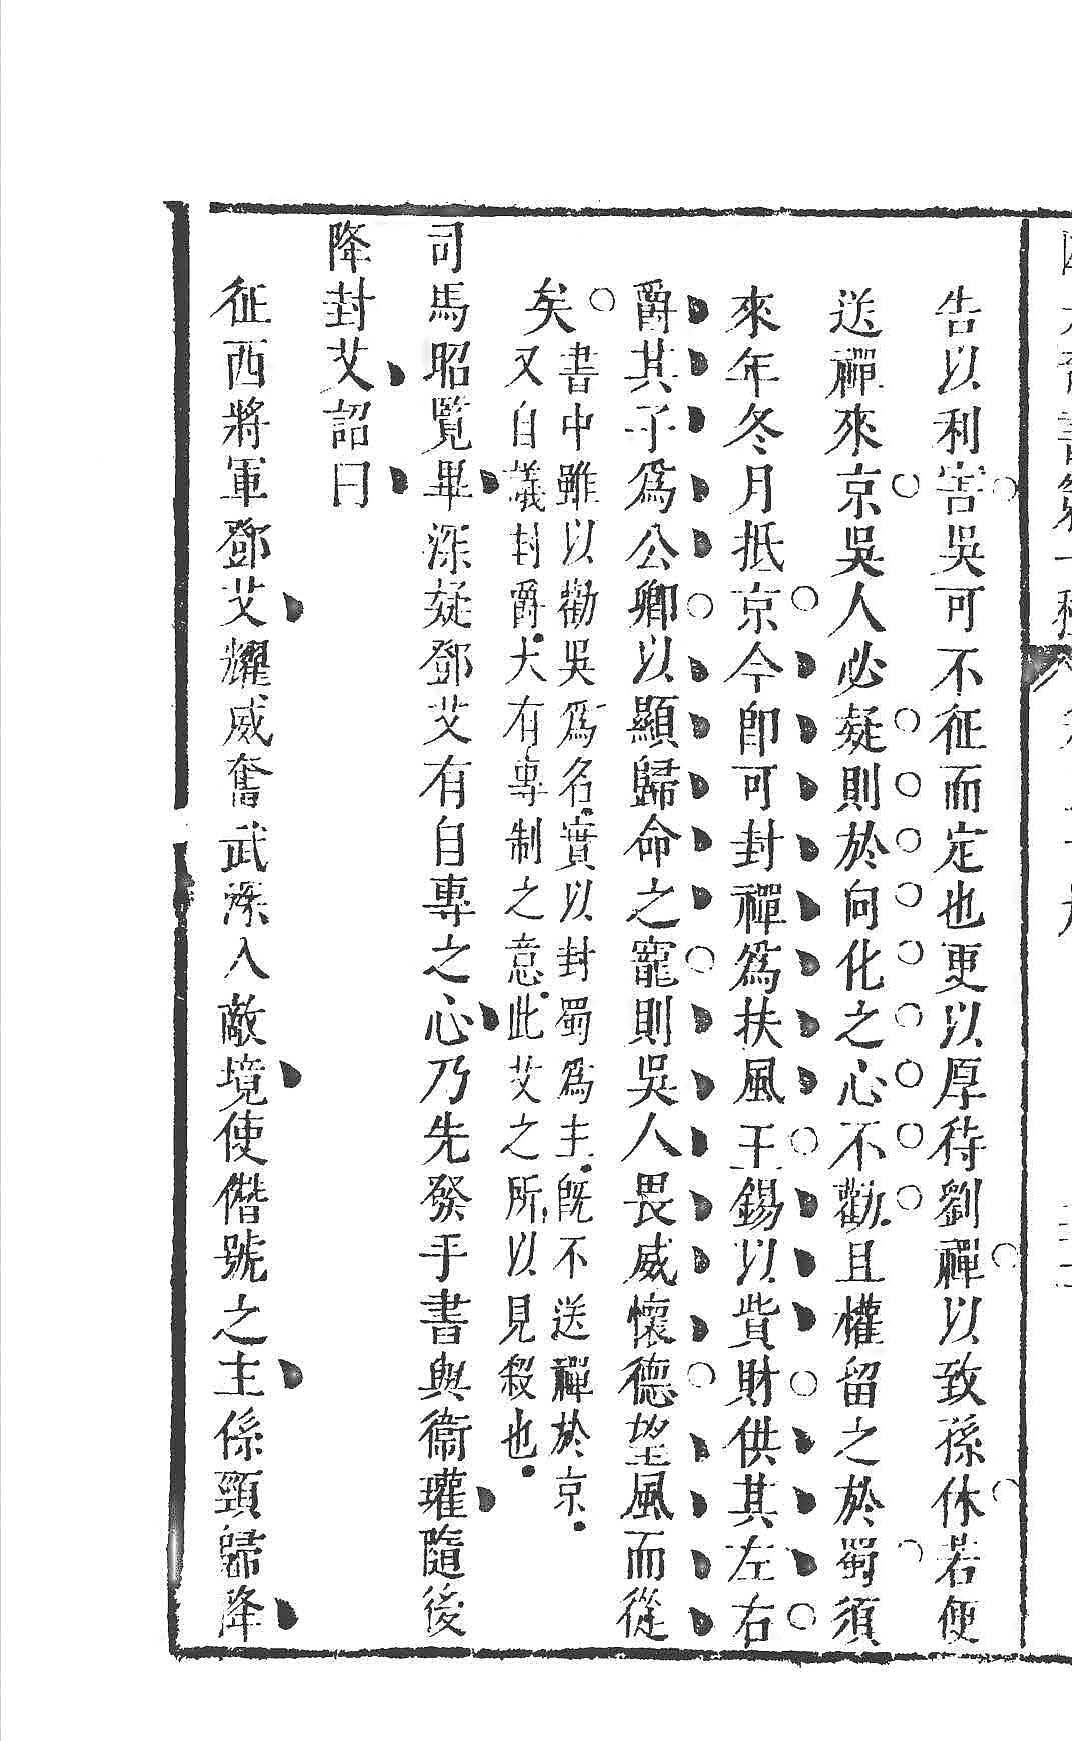 告以利害吳可不征而定也更以厚待劉禪以致孫休若便
送禪來京吳人必疑則於向化之心不勸且權留之於蜀須
來年冬月抵京今卽可封禪爲扶風王錫以貲財供其左右
爵其子爲公卿以顯歸命之寵則吳人畏威懷德望風而從
矣
書中雖以勸吳爲名實以封蜀爲主旣不送禪於京
又自議封爵大有專制之意此艾之所以見殺也
司馬昭覽畢深疑鄧艾有自專之心乃先發手書與衞瓘隨後
降封艾詔曰
征西將軍鄧艾耀威奮武深入敵境使僭號之主係頸歸降